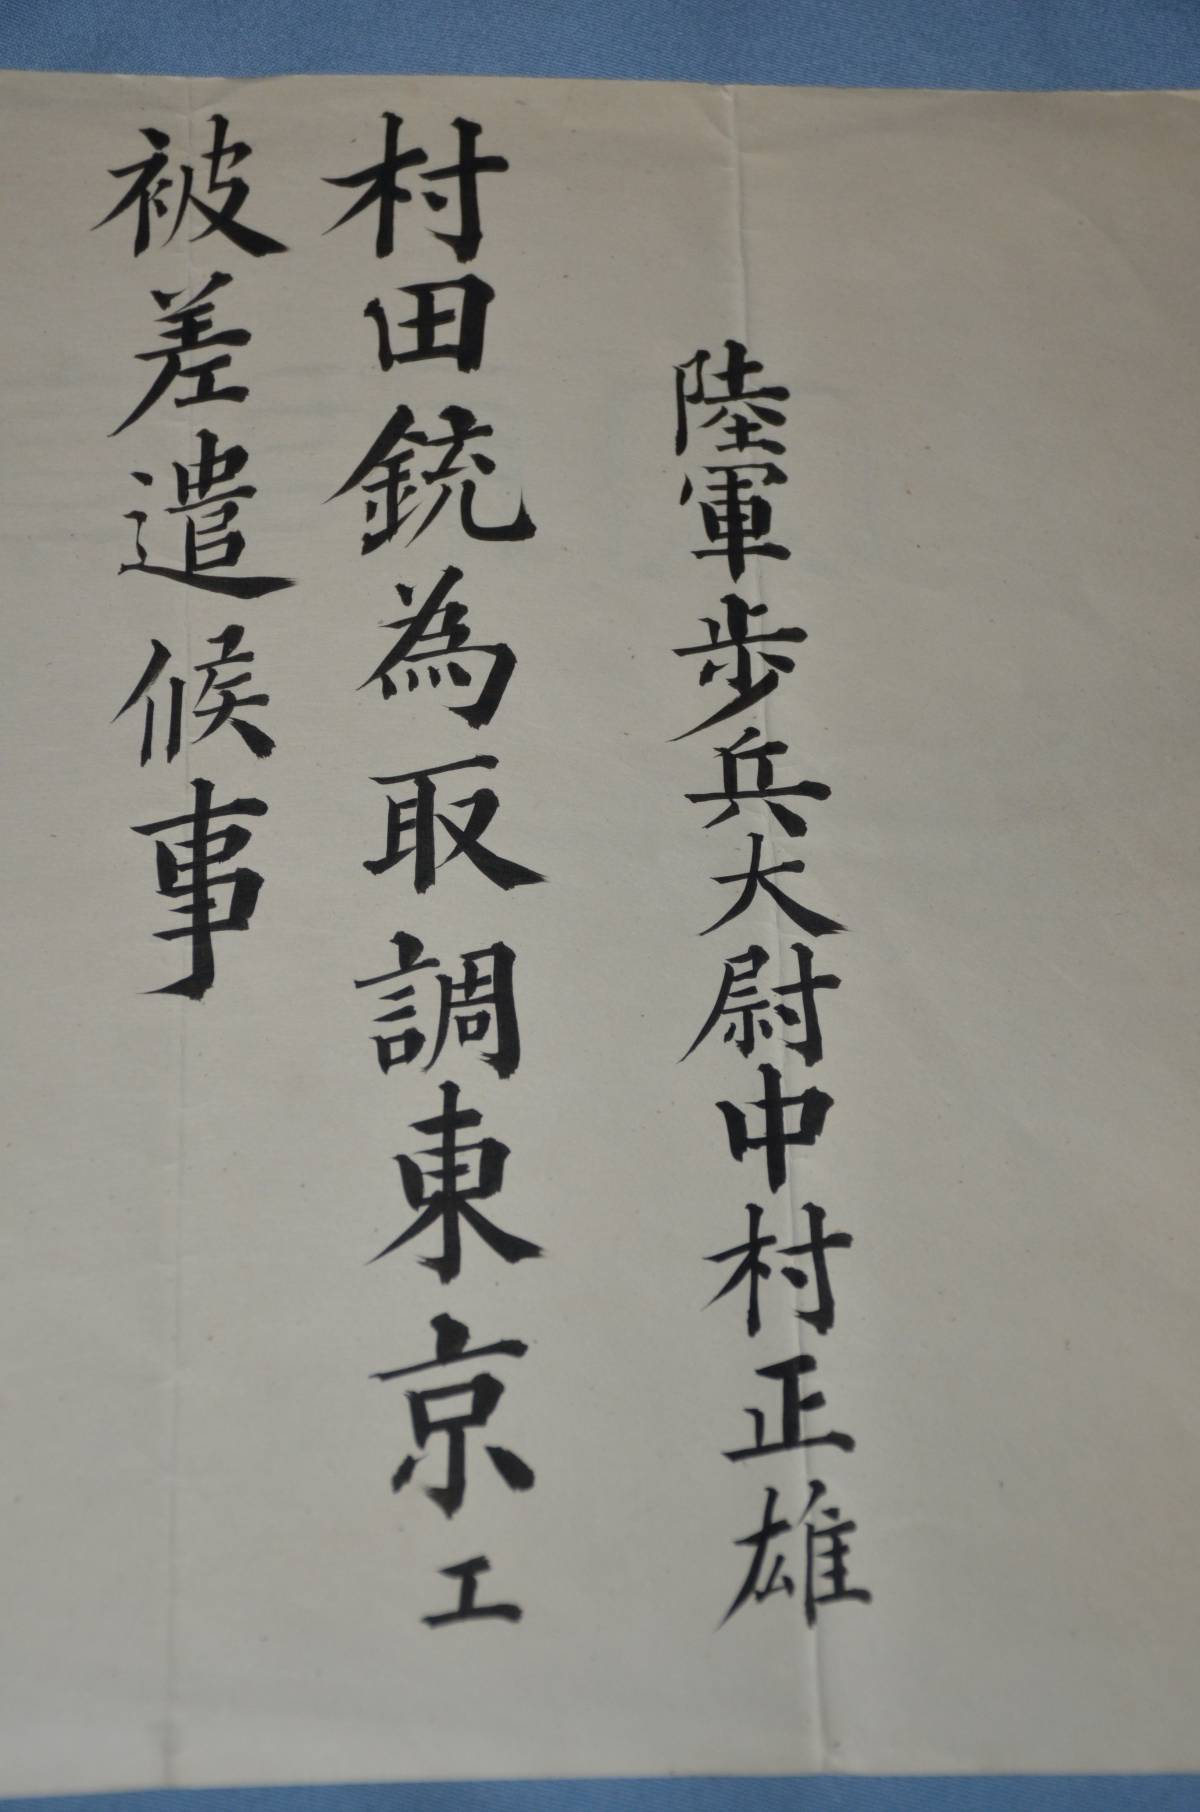 陸軍歩兵大尉中村正雄
村田銃為取調東京エ
被差遣候事